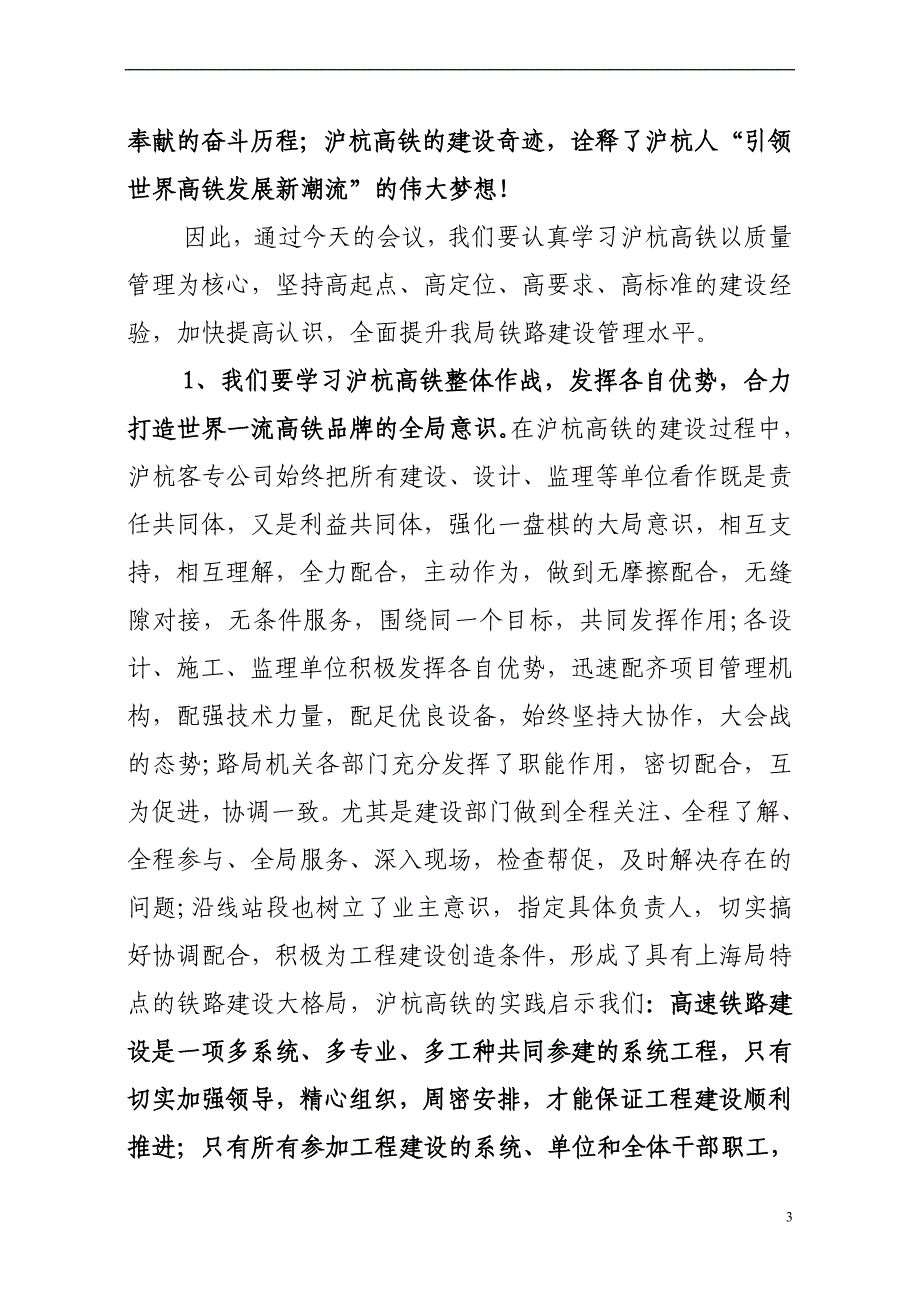 奉献的奋斗历程；沪杭高铁的建设奇迹，诠释了沪杭人“引领
世界高铁发展新潮流”的伟大梦想！
因此，通过今天的会议，我们要认真学习沪杭高铁以质量
管理为核心，坚持高起点、高定位、高要求、高标准的建设经
验，加快提高认识，全面提升我局铁路建设管理水平。
1、我们要学习沪杭高铁整体作战，发挥各自优势，合力
打造世界一流高铁品牌的全局意识。在沪杭高铁的建设过程中，
沪杭客专公司始终把所有建设、设计、监理等单位看作既是责
任共同体，又是利益共同体，强化一盘棋的大局意识，相互支
持，相互理解，全力配合，主动作为，做到无摩擦配合，无缝
隙对接，无条件服务，围绕同一个目标，共同发挥作用；各设
计、施工、监理单位积极发挥各自优势，迅速配齐项目管理机
构，配强技术力量，配足优良设备，始终坚持大协作，大会战
的态势；路局机关各部门充分发挥了职能作用，密切配合，互
为促进，协调一致。尤其是建设部门做到全程关注、全程了解、
全程参与、全局服务、深入现场，检查帮促，及时解决存在的
问题；沿线站段也树立了业主意识，指定具体负责人，切实搞
好协调配合，积极为工程建设创造条件，形成了具有上海局特
点的铁路建设大格局，沪杭高铁的实践启示我们：高速铁路建
设是一项多系统、多专业、多工种共同参建的系统工程，只有
切实加强领导，精心组织，周密安排，才能保证工程建设顺利
推进；只有所有参加工程建设的系统、单位和全体干部职工，
3